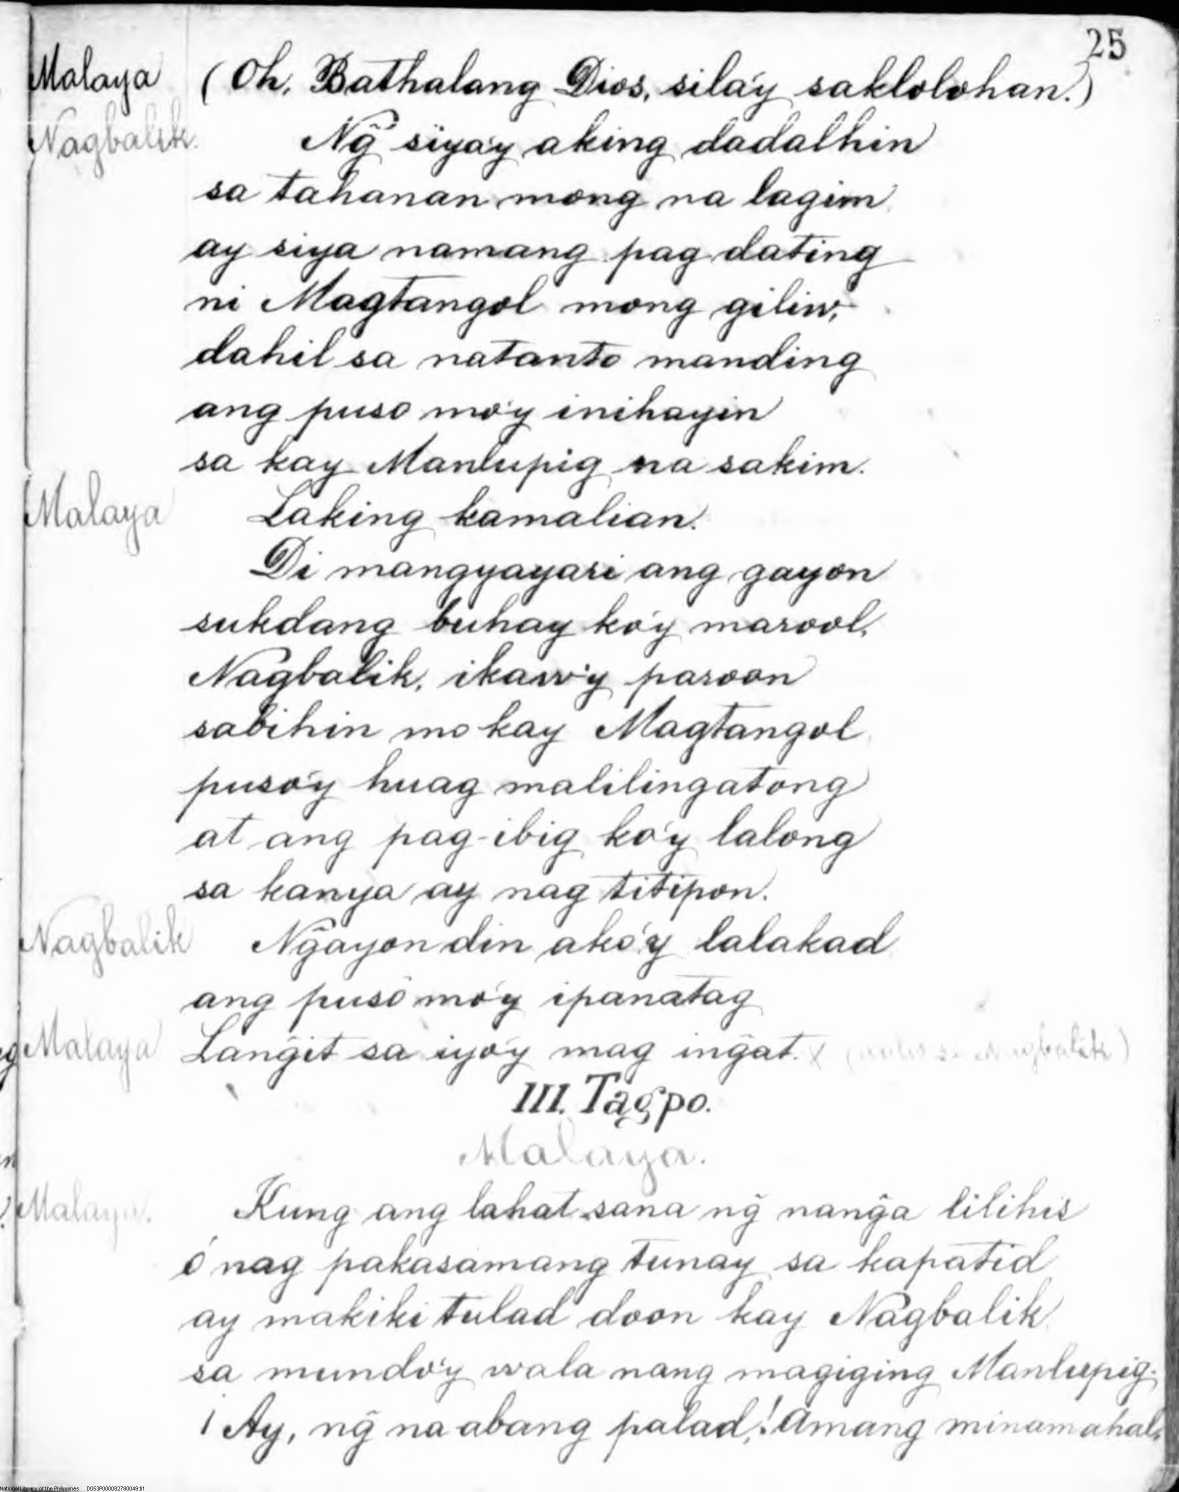 25
Malaya (Oh, Bathalang Dios, sila'y saklolohan.)
Nagbalik. Ng̃ siya'y aking dadalhin
sa tahanan mong na lagim
ay siya namang pag dating
ni Magtangol mong giliw,
dahil sa natanto manding
ang puso mo'y inihayin
sa kay Manlupig na sakim.
Malaya Laking kamalian.
Di mangyayari ang gayon
sukdang buhay ko'y marool,
Nagbalik, ikaw'y paroon
sabihin mo kay Magtangol
puso'y huag malilingatong
at ang pag-ibig ko'y lalong
sa kanya ay nag titipon.
Nagbalik Ng̃ayon din ako'y lalakad
ang puso mo'y ipanatag
Malaya Lang̃it sa iyo'y mag ing̃at. (Nagbalik)
III. Tagpo.
Malaya.
Malaya. Kung ang lahat sana ng̃ nang̃a lilihis
ó nag pakasamang tunay sa kapatid
ay makiki tulad doon kay Nagbalik
sa mundo'y wala nang magiging Manlupig.
¡Ay, ng̃ na abang palad,! Amang minamahal,
National Library of the Philippines